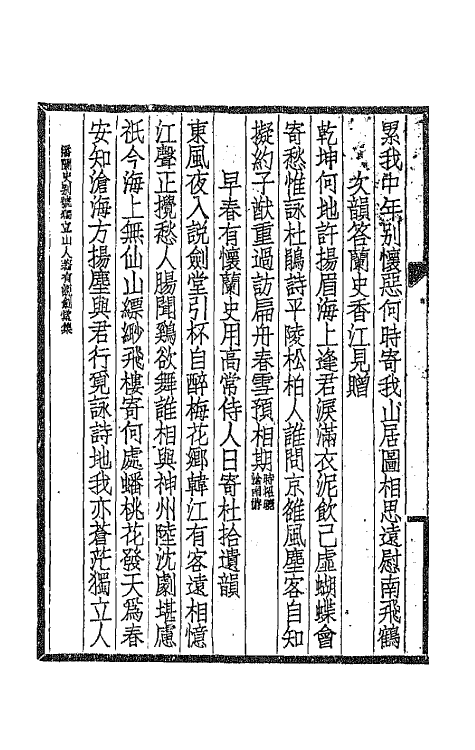 累我中年別懷惡何時寄我山居圖相思遠慰南飛鶴
次韻答蘭史香江見贈
乾坤何地許揚眉海上逢君淚滿衣泥飲已虛蝴蝶會
寄愁惟詠杜鵑詩平陵松柏人誰問京雒風塵客自知
擬約子猷重過訪扁舟春雪預相期
早春有懷蘭史用高常侍人日寄杜拾遺韻
東風夜入說劍堂引杯自醉梅花鄉韓江有客遠相憶
江聲正攪愁人腸聞鷄欲舞誰相與神州陸沈劇堪慮
祇今海上無仙山縹緲飛樓寄何處蟠桃花發天爲春
安知滄海方揚塵與君行覓詠詩地我亦蒼茫獨立人
潘蘭史別號獨立山人著有說劍堂集